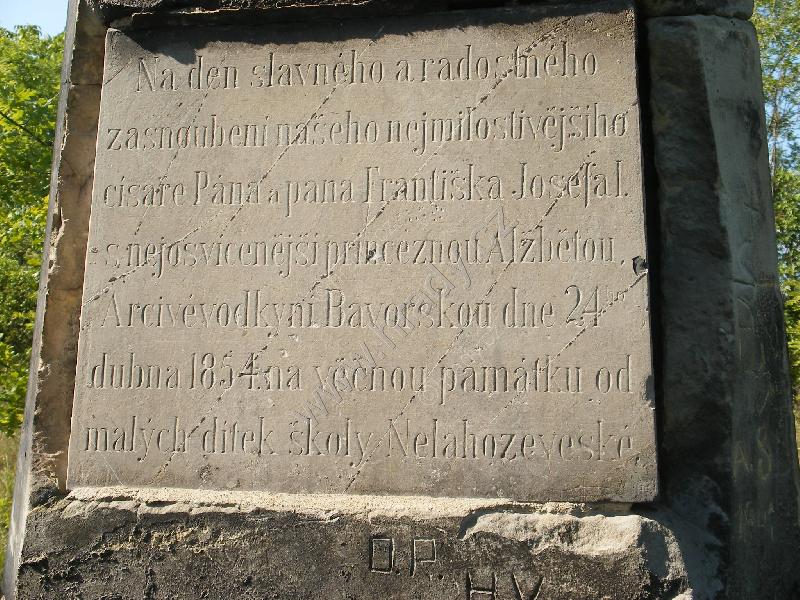 Na den slavného a radostného
zasnoubení našeho nejmilostivějšího
císaře Pána a pana Františka Josefa I.
s nejosvícenější princeznou Alžbětou,
Arcivévodkyní Bavorskou dne 24ho
dubna 1854. na věčnou památku od
malých dítek školy Nelahozeveské.
O.P.
H.V
www.hrady.cz